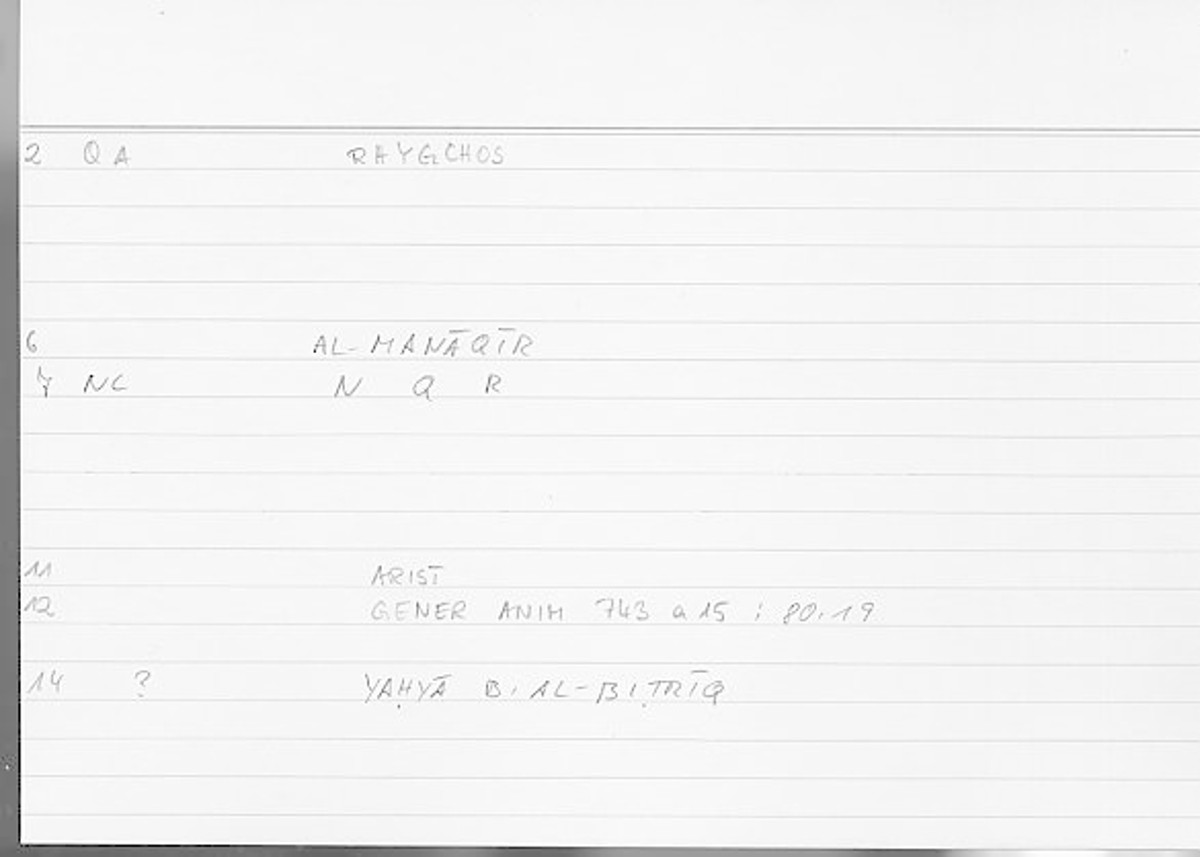 2 QA RHYGCHOS
6 AL-MANĀQĪR
7 NC N Q R
11 ARIST
12 GENER ANIM 743 a 15 : 80.19
14 ? YAḤYĀ B. AL-BIṬRĪQ